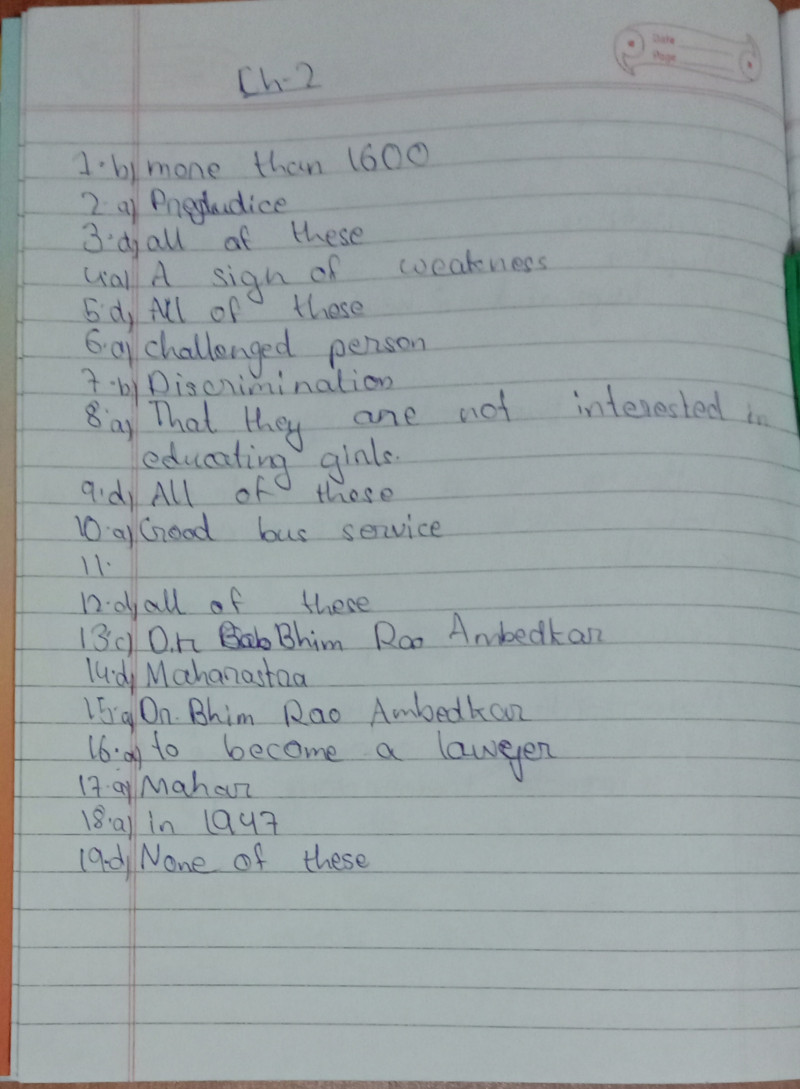 Date
Page
Ch-2
1. b) more than 1600
2. a) Pregudice
3. d) all of these
4. a) A sign of weakness
5. d) All of these
6. a) challenged person
7. b) Discrimination
8. a) That they are not interested in
educating girls.
9. d) All of these
10. a) Good bus service
11.
12. d) all of these
13. c) Dr Bhim Rao Ambedkar
14. d) Maharastra
15. a) Dr. Bhim Rao Ambedkar
16. a) to become a lawyer
17. a) Mahar
18. a) in 1947
19. d) None of these